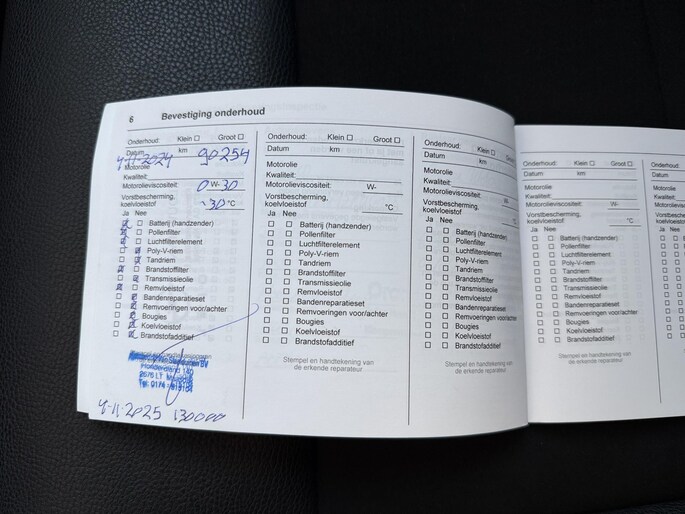 6 Bevestiging onderhoud
Onderhoud: Klein ☐ Groot ☐
Datum km
4-11-2024 90254
Motorolie
Kwaliteit:
Motorolieviscositeit: 0 W- 30
Vorstbescherming,
koelvloeistof -30 °C
Ja Nee
☑ ☐ Batterij (handzender)
☑ ☐ Pollenfilter
☑ ☐ Luchtfilterelement
☐ ☑ Poly-V-riem
☐ ☑ Tandriem
☑ ☐ Brandstoffilter
☐ ☑ Transmissieolie
☑ ☐ Remvloeistof
☐ ☑ Bandenreparatieset
☐ ☑ Remvoeringen voor/achter
☐ ☑ Bougies
☐ ☑ Koelvloeistof
☐ ☑ Brandstofadditief
BV
140
2676 LT
Tel: 0174
4-11-2025 130000
Onderhoud: Klein ☐ Groot ☐
Datum km
Motorolie
Kwaliteit:
Motorolieviscositeit: W-
Vorstbescherming,
koelvloeistof °C
Ja Nee
☐ ☐ Batterij (handzender)
☐ ☐ Pollenfilter
☐ ☐ Luchtfilterelement
☐ ☐ Poly-V-riem
☐ ☐ Tandriem
☐ ☐ Brandstoffilter
☐ ☐ Transmissieolie
☐ ☐ Remvloeistof
☐ ☐ Bandenreparatieset
☐ ☐ Remvoeringen voor/achter
☐ ☐ Bougies
☐ ☐ Koelvloeistof
☐ ☐ Brandstofadditief
Stempel en handtekening van
de erkende reparateur
Onderhoud: Klein ☐ Groot ☐
Datum km
Motorolie
Kwaliteit:
Motorolieviscositeit: W-
Vorstbescherming,
koelvloeistof °C
Ja Nee
☐ ☐ Batterij (handzender)
☐ ☐ Pollenfilter
☐ ☐ Luchtfilterelement
☐ ☐ Poly-V-riem
☐ ☐ Tandriem
☐ ☐ Brandstoffilter
☐ ☐ Transmissieolie
☐ ☐ Remvloeistof
☐ ☐ Bandenreparatieset
☐ ☐ Remvoeringen voor/achter
☐ ☐ Bougies
☐ ☐ Koelvloeistof
☐ ☐ Brandstofadditief
Stempel en handtekening van
de erkende reparateur
Onderhoud: Klein ☐ Groot ☐
Datum km
Motorolie
Kwaliteit:
Motorolieviscositeit: W-
Vorstbescherming,
koelvloeistof °C
Ja Nee
☐ ☐ Batterij (handzender)
☐ ☐ Pollenfilter
☐ ☐ Luchtfilterelement
☐ ☐ Poly-V-riem
☐ ☐ Tandriem
☐ ☐ Brandstoffilter
☐ ☐ Transmissieolie
☐ ☐ Remvloeistof
☐ ☐ Bandenreparatieset
☐ ☐ Remvoeringen voor/achter
☐ ☐ Bougies
☐ ☐ Koelvloeistof
☐ ☐ Brandstofadditief
Stempel en handtekening van
de erkende reparateur
Onderhoud:
Datum
Motorolie
Kwaliteit:
Motorolieviscositeit
Vorstbescherming,
koelvloeistof
Ja Nee